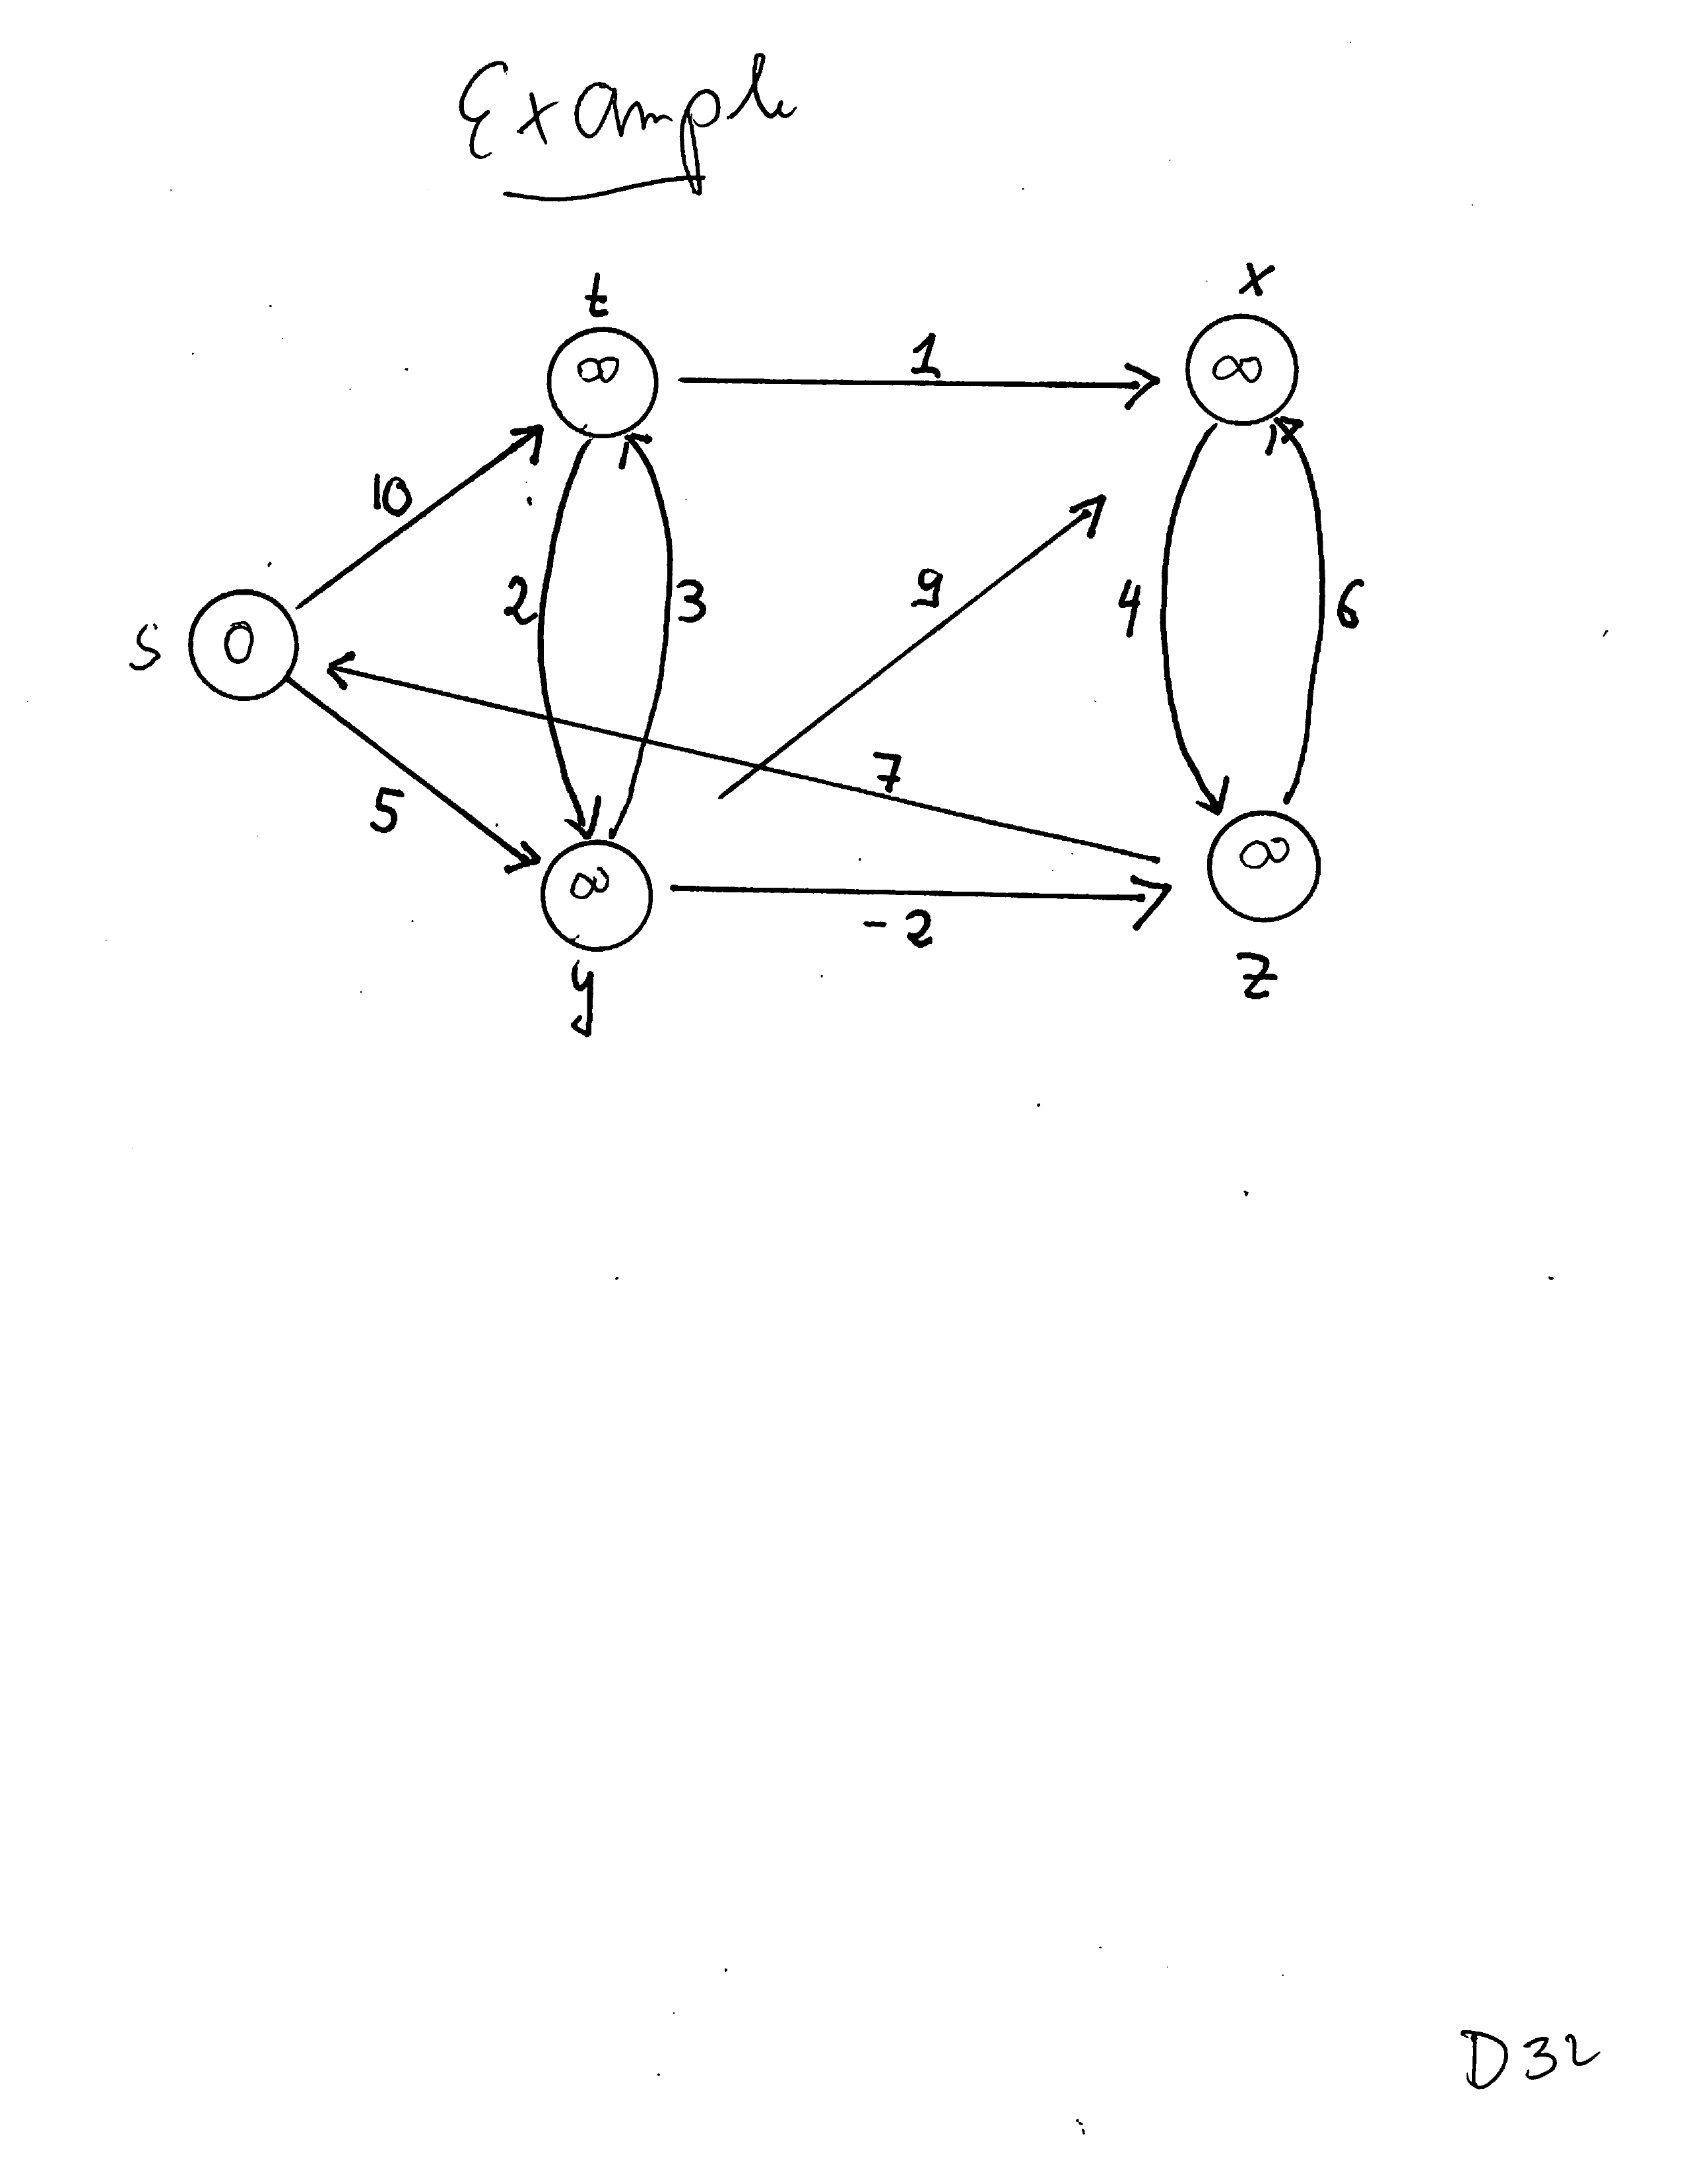 Example
t x
∞ 1 ∞
10
2 3 9 4 6
s 0
7
5
∞ -2 ∞
y z
D32